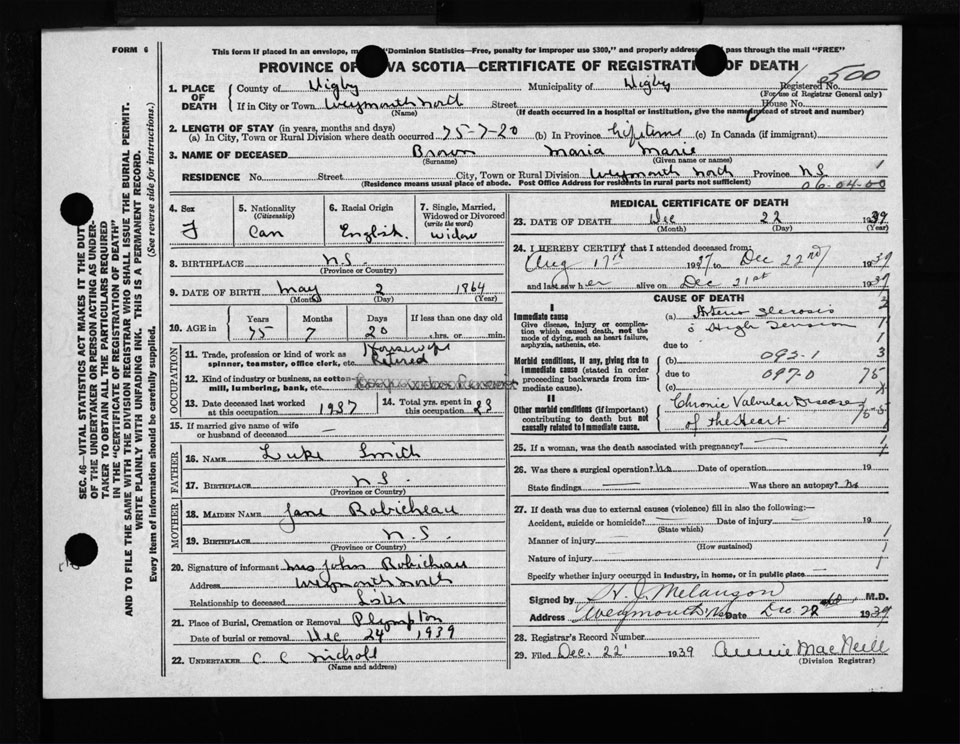 FORM 6
This form if placed in an envelope, "Dominion Statistics—Free, penalty for improper use $300," and properly address pass through the mail "FREE"
PROVINCE OF VA SCOTIA—CERTIFICATE OF REGISTRATION OF DEATH
1. PLACE OF DEATH
County of Digby Municipality of Digby Registered No. 8500
(For use of Registrar General only)
If in City or Town Weymouth North Street House No.
(Name) (If death occurred in a hospital or institution, give the name instead of street and number)
2. LENGTH OF STAY (in years, months and days)
(a) In City, Town or Rural Division where death occurred 75-7-20 (b) In Province lifetime (c) In Canada (if immigrant)
3. NAME OF DECEASED Brown Maria Marie
(Surname) (Given name or names)
RESIDENCE No. Street City, Town or Rural Division Weymouth North Province N.S. 1
(Residence means usual place of abode. Post Office Address for residents in rural parts not sufficient) 06-04-00
4. Sex F
5. Nationality (Citizenship) Can
6. Racial Origin English
7. Single, Married, Widowed or Divorced (write the word) Widow
8. BIRTHPLACE N.S.
(Province or Country)
9. DATE OF BIRTH May 2 1864
(Month) (Day) (Year)
10. AGE in Years Months Days If less than one day old
75 7 20 hrs. or min.
OCCUPATION
11. Trade, profession or kind of work as spinner, teamster, office clerk, etc. Housewife Retired
12. Kind of industry or business, as cotton mill, lumbering, bank, etc.
13. Date deceased last worked at this occupation 1937
14. Total yrs. spent in this occupation 23
15. If married give name of wife or husband of deceased —
FATHER
16. NAME Luke Smith
17. BIRTHPLACE N.S.
(Province or Country)
MOTHER
18. MAIDEN NAME Jane Robicheau
19. BIRTHPLACE N.S.
(Province or Country)
20. Signature of informant Mrs John Robicheau
Address Weymouth North
Relationship to deceased Sister
21. Place of Burial, Cremation or Removal Plympton
Date of burial or removal Dec 24 1939
22. UNDERTAKER C C Nicholl
(Name and address)
MEDICAL CERTIFICATE OF DEATH
23. DATE OF DEATH Dec 22 1939
(Month) (Day) (Year)
24. I HEREBY CERTIFY that I attended deceased from:
Aug 17th 1937 to Dec 22nd 1939
and last saw her alive on Dec 21st 1939
CAUSE OF DEATH
I
Immediate cause (a) Arterio Sclerosis
Give disease, injury or complication which caused death, not the mode of dying, such as heart failure, asphyxia, asthenia, etc.
c High Tension
due to
Morbid conditions, if any, giving rise to immediate cause (stated in order proceeding backwards from immediate cause).
(b) 092-1 3
due to 097-0 75
(c)
II
Other morbid conditions (if important) contributing to death but not causally related to immediate cause.
Chronic Valvular Disease
of the Heart
25. If a woman, was the death associated with pregnancy? —
26. Was there a surgical operation? no Date of operation 19
State findings — Was there an autopsy? no
27. If death was due to external causes (violence) fill in also the following:
Accident, suicide or homicide? — Date of injury — 19
(State which)
Manner of injury —
(How sustained)
Nature of injury —
Specify whether injury occurred in industry, in home, or in public place —
Signed by H. J. Melançon M.D.
Address Weymouth N.S. Date Dec. 22 1939
28. Registrar's Record Number
29. Filed Dec. 22 1939 Annie MacNeill
(Division Registrar)
SEC. 46—VITAL STATISTICS ACT MAKES IT THE DUTY
OF THE UNDERTAKER OR PERSON ACTING AS UNDER-
TAKER TO OBTAIN ALL THE PARTICULARS REQUIRED
IN THE "CERTIFICATE OF REGISTRATION OF DEATH"
AND TO FILE THE SAME WITH THE DIVISION REGISTRAR WHO SHALL ISSUE THE BURIAL PERMIT.
WRITE PLAINLY WITH UNFADING INK. THIS IS A PERMANENT RECORD.
Every item of information should be carefully supplied. (See reverse side for instructions.)